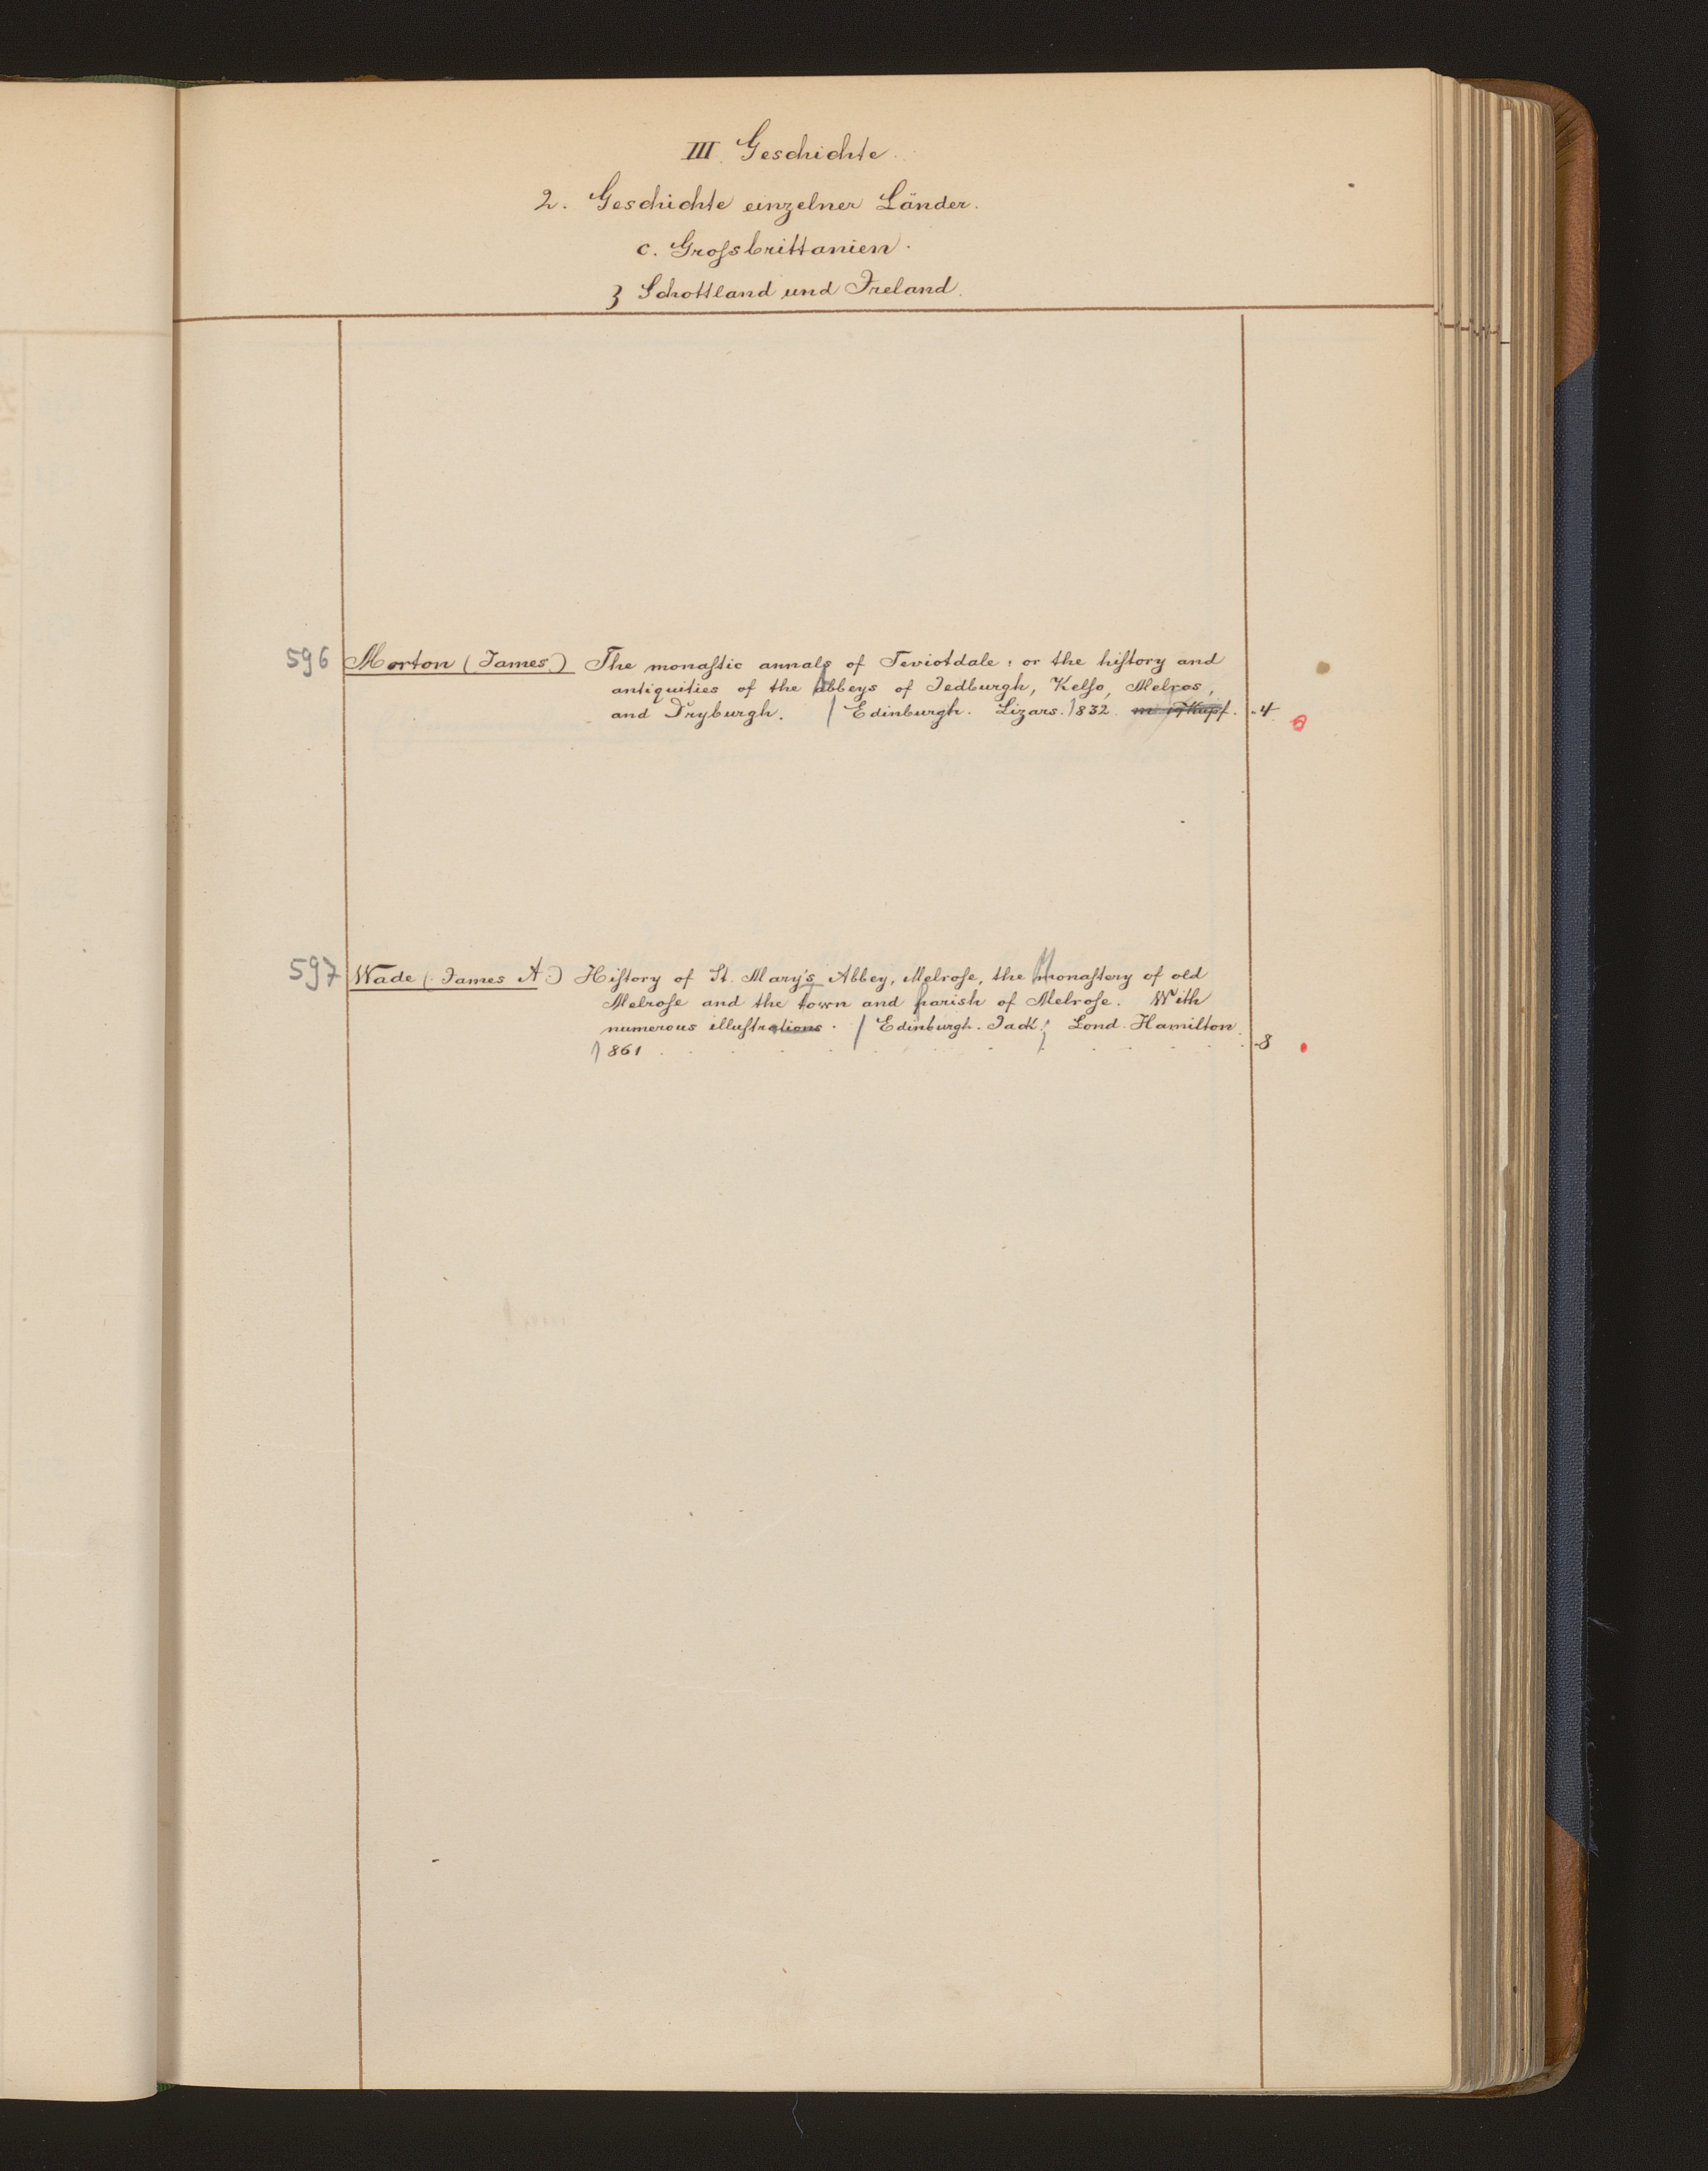 III. Geschichte.
2. Geschichte einzelner Länder.
c. Groſsbrittanien.
ʒ Schottland und Ireland.
596 Morton (James) The monaſtic annals of Teviotdale: or the hiſtory and
antiquities of the Abbeys of Jedburgh, Kelſo, Melros,
and Dryburgh. / Edinburgh. Lizars. 1832. m. 19 Kupf. 4
597 Wade (James A.) Hiſtory of St. Mary's Abbey, Melroſe, the Monaſtery of old
Melroſe and the town and parish of Melroſe. With
numerous illuſtrations. / Edinburgh. Jack; Lond. Hamilton.
1861 . . . . . . . . 8